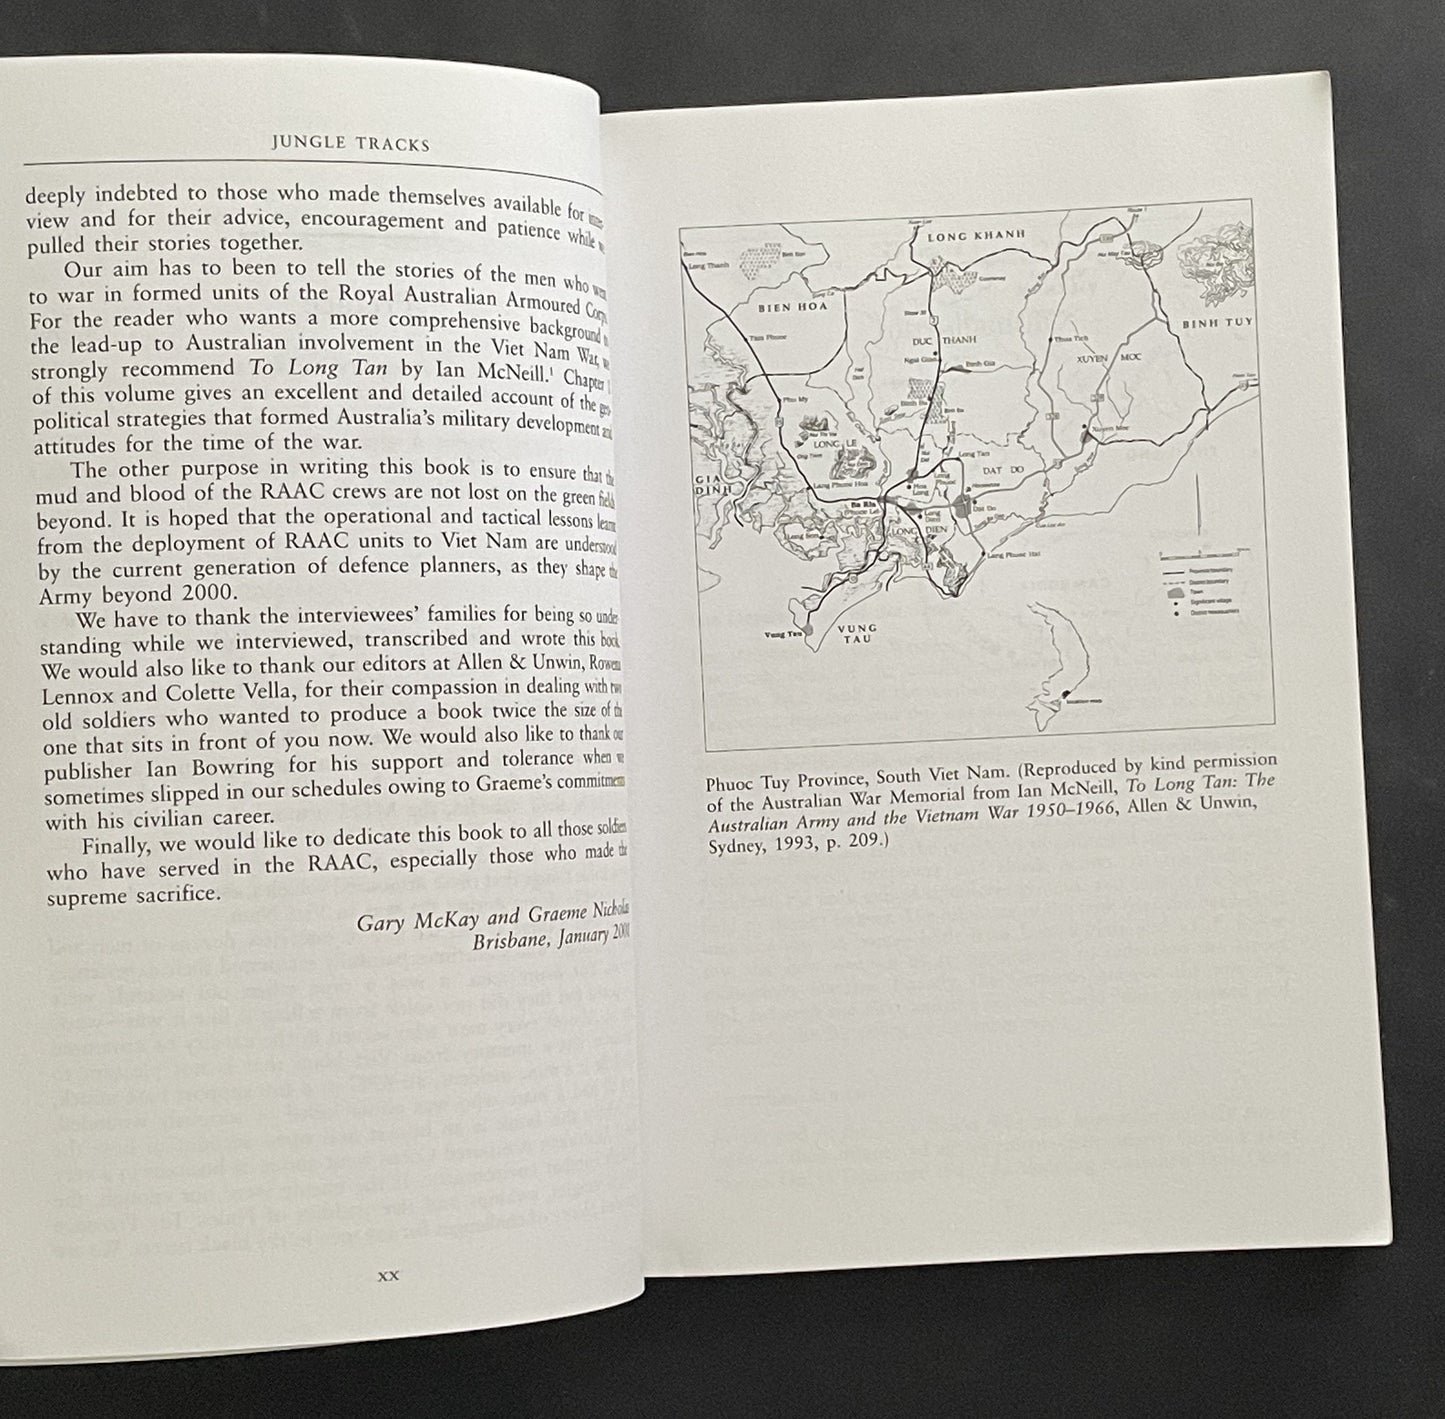 JUNGLE TRACKS
deeply indebted to those who made themselves available for
view and for their advice, encouragement and patience while
pulled their stories together.
Our aim has to been to tell the stories of the men who
to war in formed units of the Royal Australian Armoured Corps.
For the reader who wants a more comprehensive background
the lead-up to Australian involvement in the Viet Nam War,
strongly recommend To Long Tan by Ian McNeill.¹ Chapter 1
of this volume gives an excellent and detailed account of the
political strategies that formed Australia's military development
attitudes for the time of the war.
The other purpose in writing this book is to ensure that the
mud and blood of the RAAC crews are not lost on the green fields
beyond. It is hoped that the operational and tactical lessons learnt
from the deployment of RAAC units to Viet Nam are understood
by the current generation of defence planners, as they shape the
Army beyond 2000.
We have to thank the interviewees' families for being so under-
standing while we interviewed, transcribed and wrote this book.
We would also like to thank our editors at Allen & Unwin, Rowena
Lennox and Colette Vella, for their compassion in dealing with two
old soldiers who wanted to produce a book twice the size of the
one that sits in front of you now. We would also like to thank our
publisher Ian Bowring for his support and tolerance when we
sometimes slipped in our schedules owing to Graeme's commitments
with his civilian career.
Finally, we would like to dedicate this book to all those soldiers
who have served in the RAAC, especially those who made the
supreme sacrifice.
Gary McKay and Graeme Nicholas
Brisbane, January 2001
xx
LONG KHANH
Long Thanh
BIEN HOA
BINH TUY
DUC THANH
Ngai Giao
Binh Gia
Thua Tich
XUYEN MOC
Phu My
Binh Ba
LONG LE
Xuyen Moc
Long Tan
DAT DO
GIA
DINH
Lang Phuoc Hoa
Hoa
Long
Long
Phuoc
Ba Ria
Dat Do
Long
Dien
LONG DIEN
Long Son
Long Phuoc Hai
Vung Tau
VUNG
TAU
Province boundary
District boundary
Town
Significant village
District headquarters
Phuoc Tuy Province, South Viet Nam. (Reproduced by kind permission
of the Australian War Memorial from Ian McNeill, To Long Tan: The
Australian Army and the Vietnam War 1950–1966, Allen & Unwin,
Sydney, 1993, p. 209.)